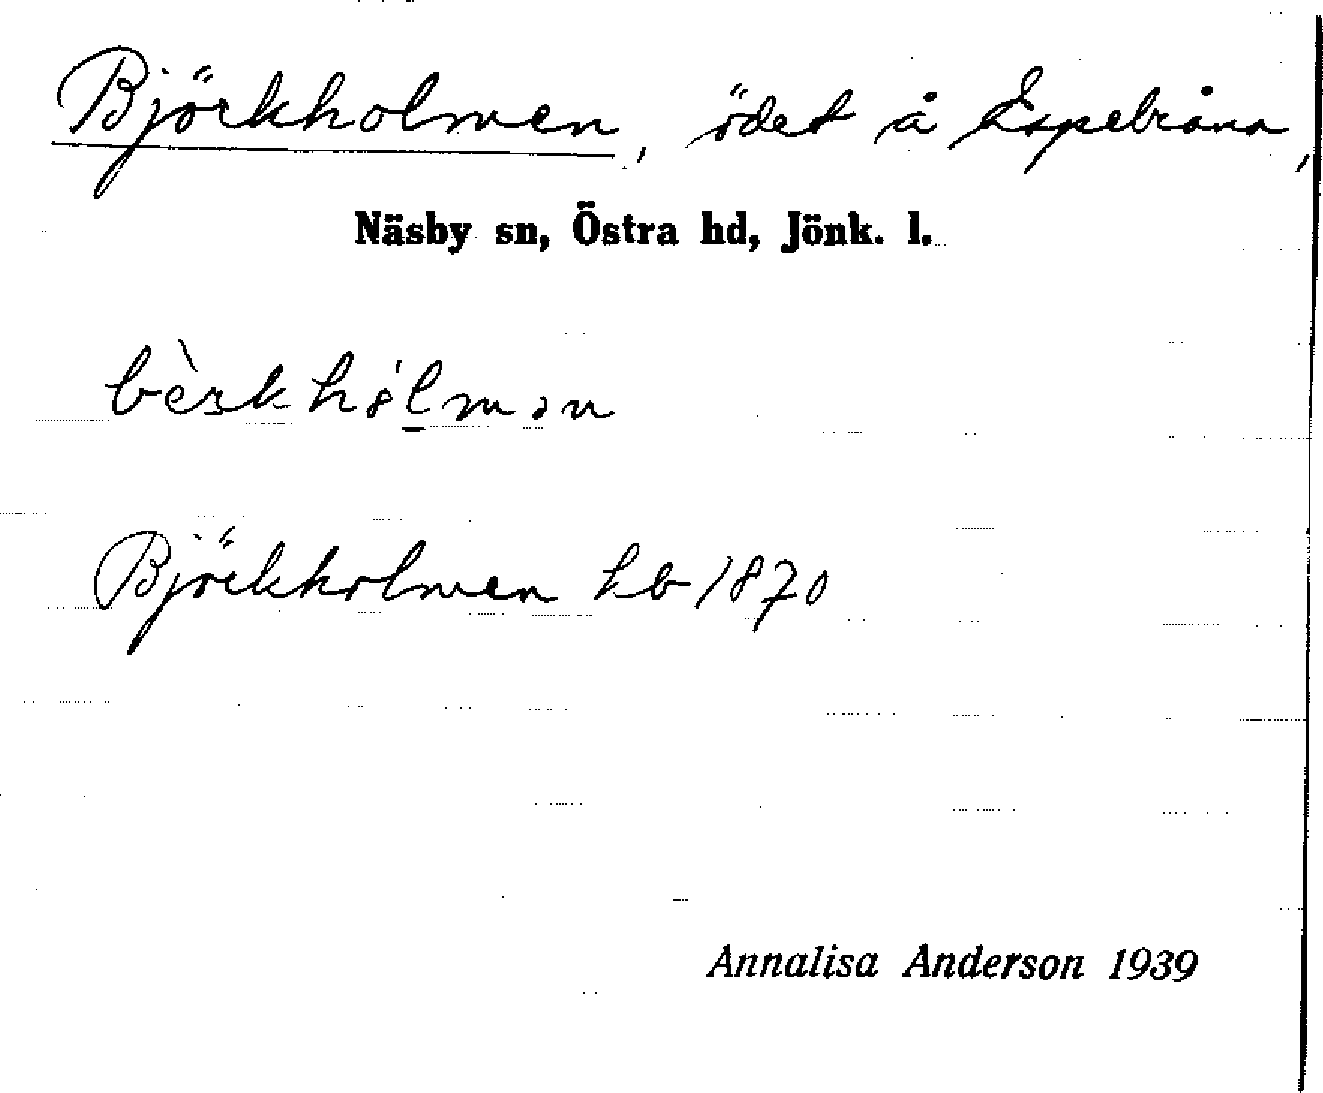 Björkholmen, ödet å Espebråna,
Näsby sn, Östra hd, Jönk. l.
bèrkhólmən
Björkholmen hb 1870
Annalisa Anderson 1939